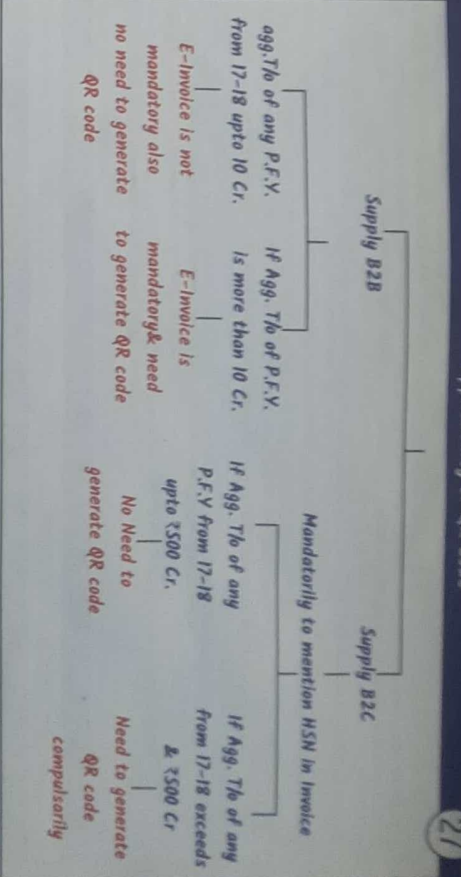 27
Supply B2B
Supply B2C
Mandatorily to mention HSN in Invoice
agg.T/o of any P.F.Y.
from 17-18 upto 10 Cr.
E-Invoice is not
mandatory also
no need to generate
QR code
If Agg. T/o of P.F.Y.
is more than 10 Cr.
E-Invoice is
mandatory& need
to generate QR code
If Agg. T/o of any
P.F.Y from 17-18
upto ₹500 Cr.
No Need to
generate QR code
If Agg. T/o of any
from 17-18 exceeds
& ₹500 Cr
Need to generate
QR code
compulsorily